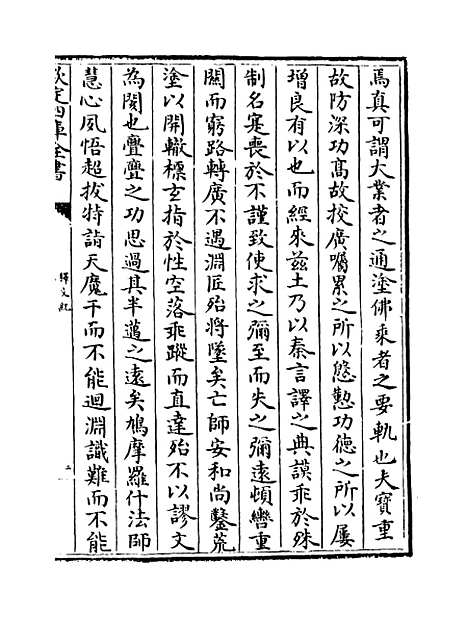 焉真可謂大業者之通塗佛乘者之要軌也夫寳重
故防深功髙故校廣囑累之所以慇懃功徳之所以屢
增良有以也而經來兹土乃以秦言譯之典謨乖於殊
制名寔喪於不謹致使求之彌至而失之彌遠頓轡重
闗而窮路轉廣不遇淵匠殆將墜矣亡師安和尚鑿荒
塗以開轍標𤣥指於性空落乖蹤而直達殆不以謬文
為閡也亹亹之功思過其半邁之遠矣鳩摩羅什法師
慧心夙悟超拔特詣天魔干而不能迴淵識難而不能
欽定四庫全書
釋文紀